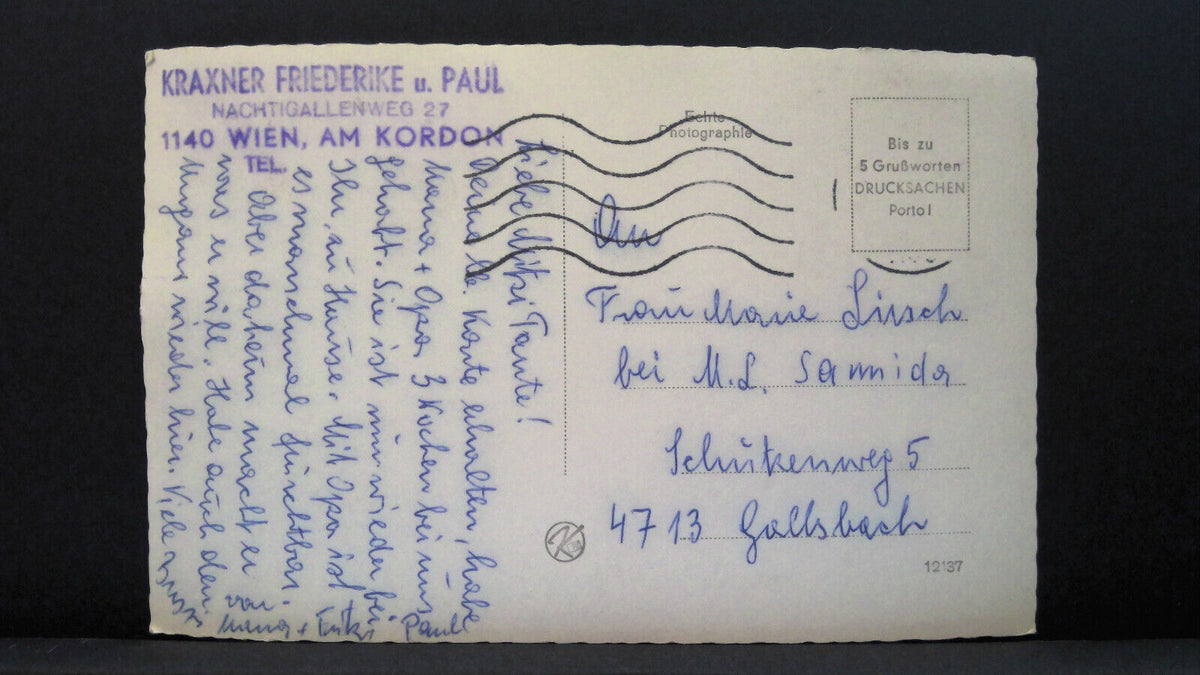 KRAXNER FRIEDERIKE u. PAUL
NACHTIGALLENWEG 27
1140 WIEN, AM KORDON
TEL.
Liebe Mitzi Tante!
Deine lb. Karte erhalten, habe
Mama + Opa 3 Wochen bei uns
gehabt. Sie ist nun wieder bei
Ihm, zu Hause. Mit Opa ist
es manchmal furchtbar.
Aber daheim macht er
was er will. Habe auch den
wieder hier. Viele
Mama + Fritzi Pauli
Echte
Photographie
Bis zu
5 Grußworten
DRUCKSACHEN
Porto!
An
Frau Marie Lirsch
bei M.L. Sammida
Schützenweg 5
4713 Gallsbach
K
12137